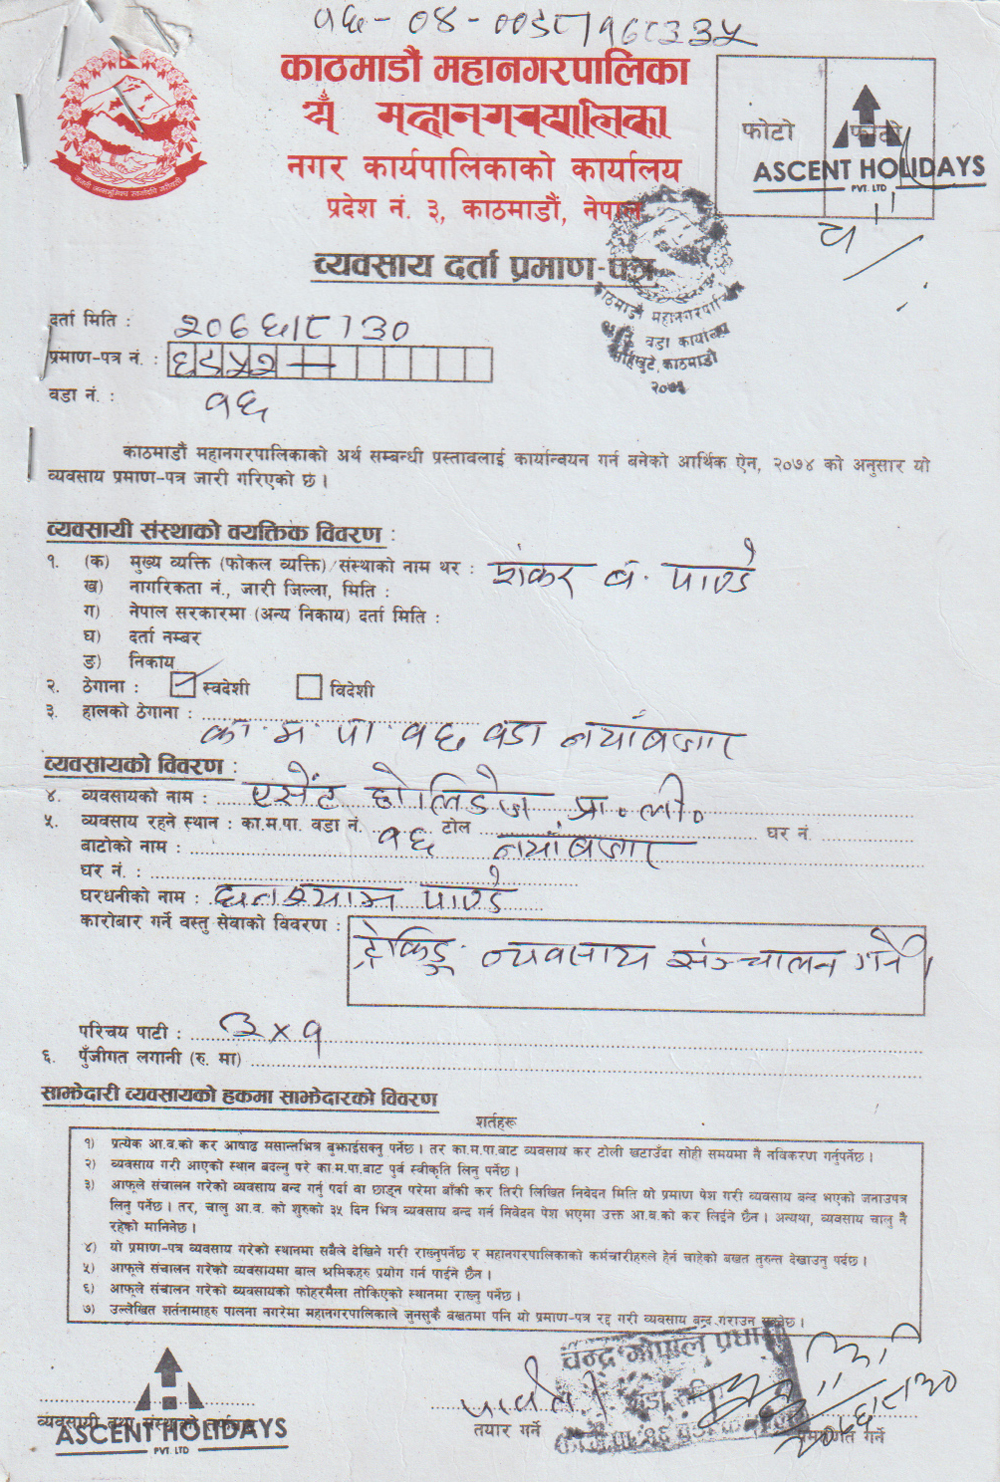 काठमाडौं महानगरपालिका
यँ महानगरपालिका
नगर कार्यपालिकाको कार्यालय
प्रदेश नं. ३, काठमाडौं, नेपाल
फोटो फोटो
ASCENT HOLIDAYS
PVT. LTD
व्यवसाय दर्ता प्रमाण-पत्र
काठमाडौं महानगरपालिका
वडा कार्यालय
काठमाडौं
दर्ता मिति :
प्रमाण-पत्र नं. :
वडा नं. : १६
काठमाडौं महानगरपालिकाको अर्थ सम्बन्धी प्रस्तावलाई कार्यान्वयन गर्न बनेको आर्थिक ऐन, २०७४ को अनुसार यो
व्यवसाय प्रमाण-पत्र जारी गरिएको छ ।
व्यवसायी संस्थाको वयक्तिक विवरण :
१. (क) मुख्य व्यक्ति (फोकल व्यक्ति)/संस्थाको नाम थर : शंकर ब. पाण्डे
ख) नागरिकता नं., जारी जिल्ला, मिति :
ग) नेपाल सरकारमा (अन्य निकाय) दर्ता मिति :
घ) दर्ता नम्बर
ङ) निकाय
२. ठेगाना : स्वदेशी विदेशी
३. हालको ठेगाना : का.म.पा. १६ वडा नयाँबजार
व्यवसायको विवरण :
४. व्यवसायको नाम : एसेंट होलिडेज प्रा.ली.
५. व्यवसाय रहने स्थान : का.म.पा. वडा नं. १६ टोल नयाँबजार घर नं.
बाटोको नाम :
घर नं. :
घरधनीको नाम : घनश्याम पाण्डे
कारोबार गर्ने वस्तु सेवाको विवरण : ट्रेकिङ्ग व्यवसाय संञ्चालन गर्ने ।
परिचय पाटी : ३×१
६. पुँजीगत लगानी (रु. मा)
साझेदारी व्यवसायको हकमा साझेदारको विवरण
शर्तहरू
१) प्रत्येक आ.व.को कर आषाढ मसान्तभित्र बुझाईसक्नु पर्नेछ । तर का.म.पा.बाट व्यवसाय कर टोली खटाउँदा सोही समयमा नै नविकरण गर्नुपर्नेछ ।
२) व्यवसाय गरी आएको स्थान बदल्नु परे का.म.पा.बाट पुर्व स्वीकृति लिनु पर्नेछ ।
३) आफूले संचालन गरेको व्यवसाय बन्द गर्नु पर्दा वा छाड्न परेमा बाँकी कर तिरी लिखित निवेदन मिति यो प्रमाण पेश गरी व्यवसाय बन्द भएको जनाउपत्र
लिनु पर्नेछ । तर, चालु आ.व. को शुरुको ३५ दिन भित्र व्यवसाय बन्द गर्न निवेदन पेश भएमा उक्त आ.व.को कर लिईने छैन । अन्यथा, व्यवसाय चालु नै
रहेको मानिनेछ ।
४) यो प्रमाण-पत्र व्यवसाय गरेको स्थानमा सबैले देखिने गरी राख्नुपर्नेछ र महानगरपालिकाको कर्मचारीहरुले हेर्न चाहेको बखत तुरुन्त देखाउनु पर्दछ ।
५) आफूले संचालन गरेको व्यवसायमा बाल श्रमिकहरु प्रयोग गर्न पाईने छैन ।
६) आफूले संचालन गरेको व्यवसायको फोहरमैला तोकिएको स्थानमा राख्नु पर्नेछ ।
७) उल्लेखित शर्तनामाहरु पालना नगरेमा महानगरपालिकाले जुनसुकै बखतमा पनि यो प्रमाण-पत्र रद्द गरी व्यवसाय बन्द गराउन सक्नेछ ।
चन्द्र गोपाल प्रधान
व्यवसायी तथा संस्थाको
तयार गर्ने
प्रमाणित गर्ने
ASCENT HOLIDAYS
PVT. LTD